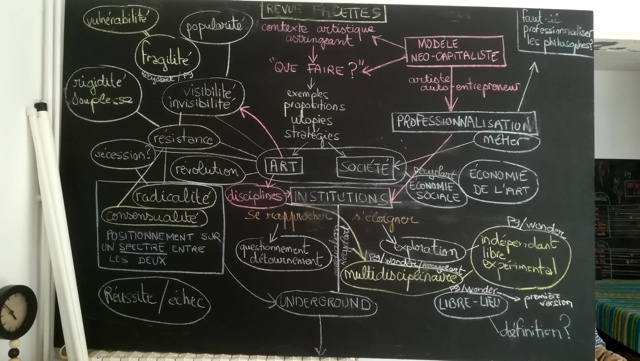 REVUE FACETTES
contexte artistique
astringeant
"QUE FAIRE?"
exemples
propositions
utopies
stratégies
vulnérabilité
popularité
fragilité
rigidité
souplesse
visibilité
invisibilité
résistance
sécession?
révolution
ART
SOCIÉTÉ
MODÈLE
NEO-CAPITALISTE
artiste
auto-entrepreneur
PROFESSIONNALISATION
métier
faut-il
professionnaliser
les philosophes?
recyclart
ÉCONOMIE
SOCIALE
ÉCONOMIE
DE L'ART
disciplines
INSTITUTIONS
se rapprocher
s'éloigner
radicalité
consensualité
POSITIONNEMENT SUR
UN SPECTRE ENTRE
LES DEUX
Réussite/échec
questionnement
détournement
exploration
multidisciplinaire
indépendant
libre
expérimental
UNDERGROUND
LIBRE-LIEU
première
version
définition?